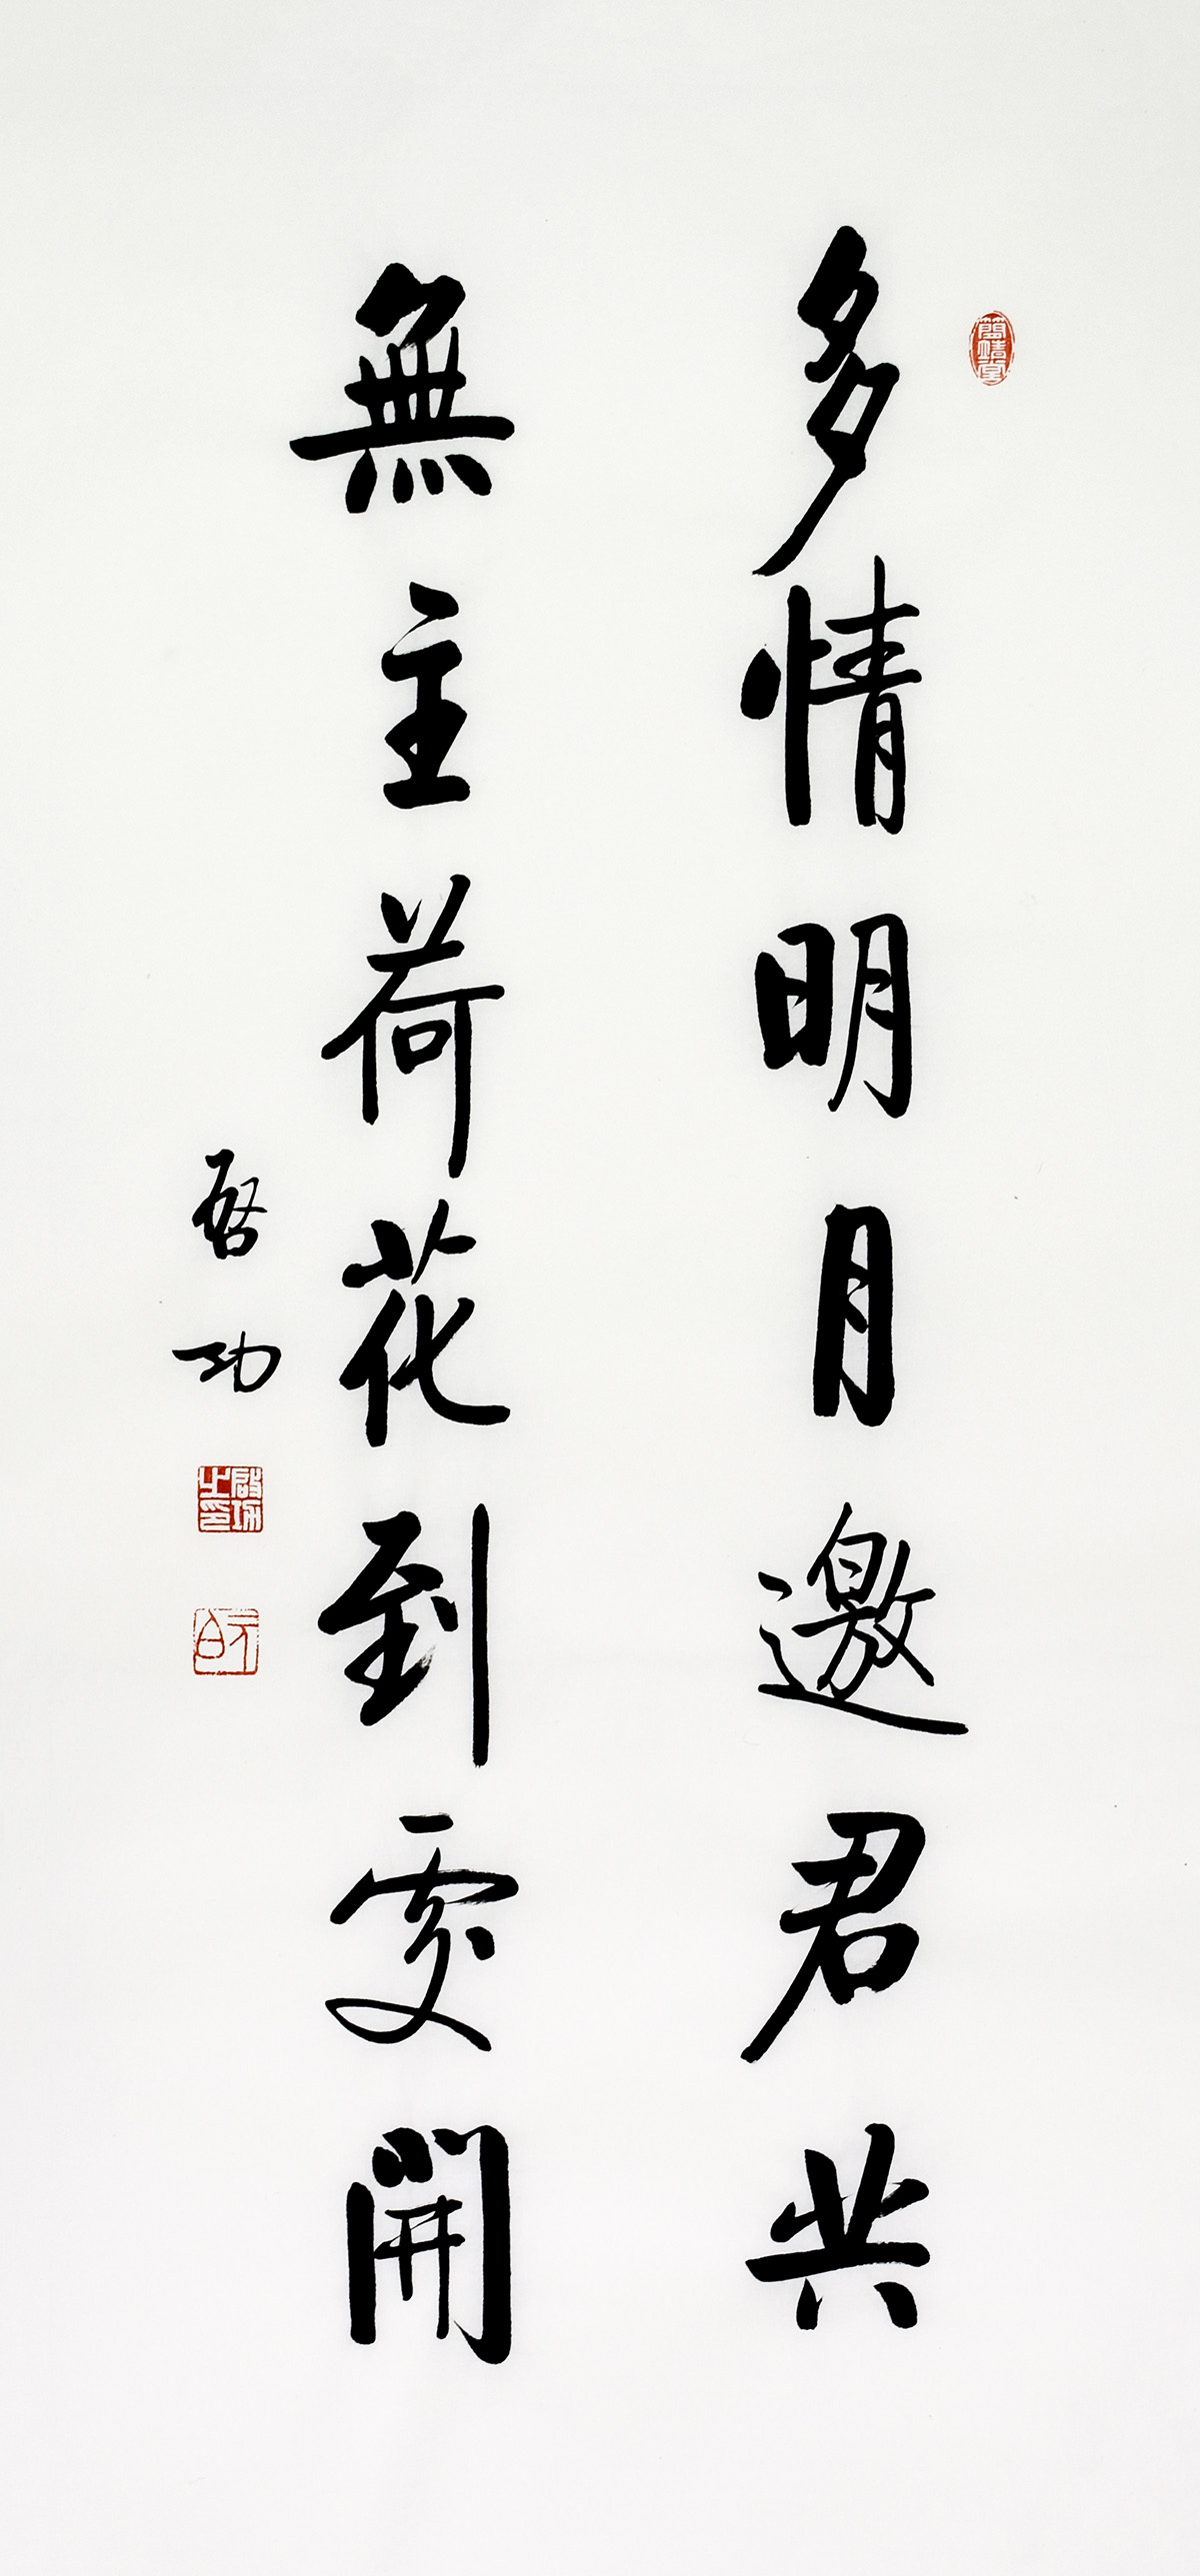 多情明月邀君共
無主荷花到處開
啓功
啟功之印
元白
簡靖堂